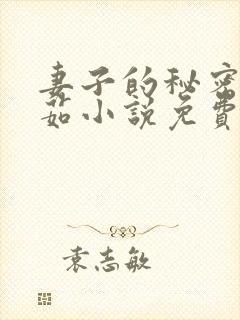 妻子的秘密
茹小說免費
袁志敏